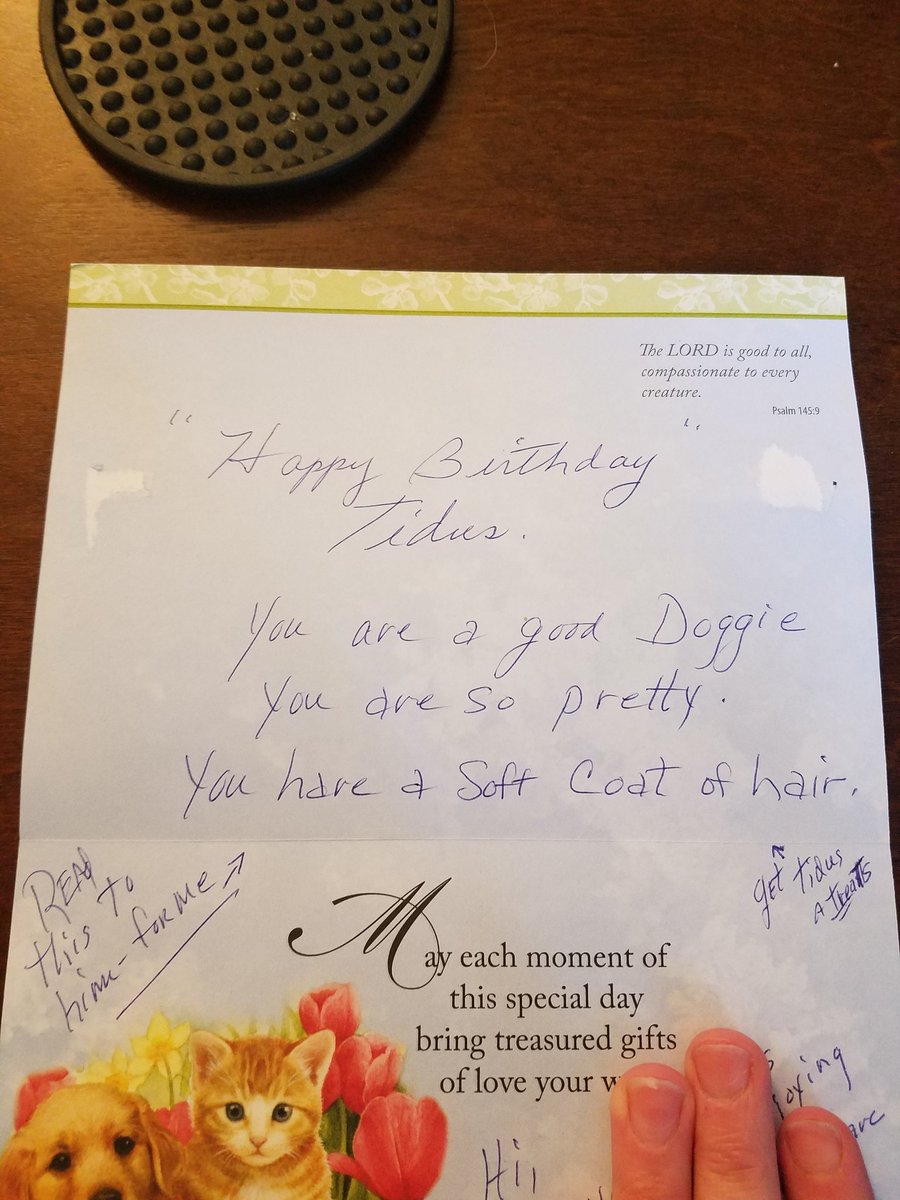 The LORD is good to all,
compassionate to every
creature.
Psalm 145:9
"Happy Birthday"
Tidus.
You are a good Doggie
You are so pretty.
You have a Soft Coat of hair.
READ
this to
him- for me
get tidus
A treats
May each moment of
this special day
bring treasured gifts
of love your
Hi,